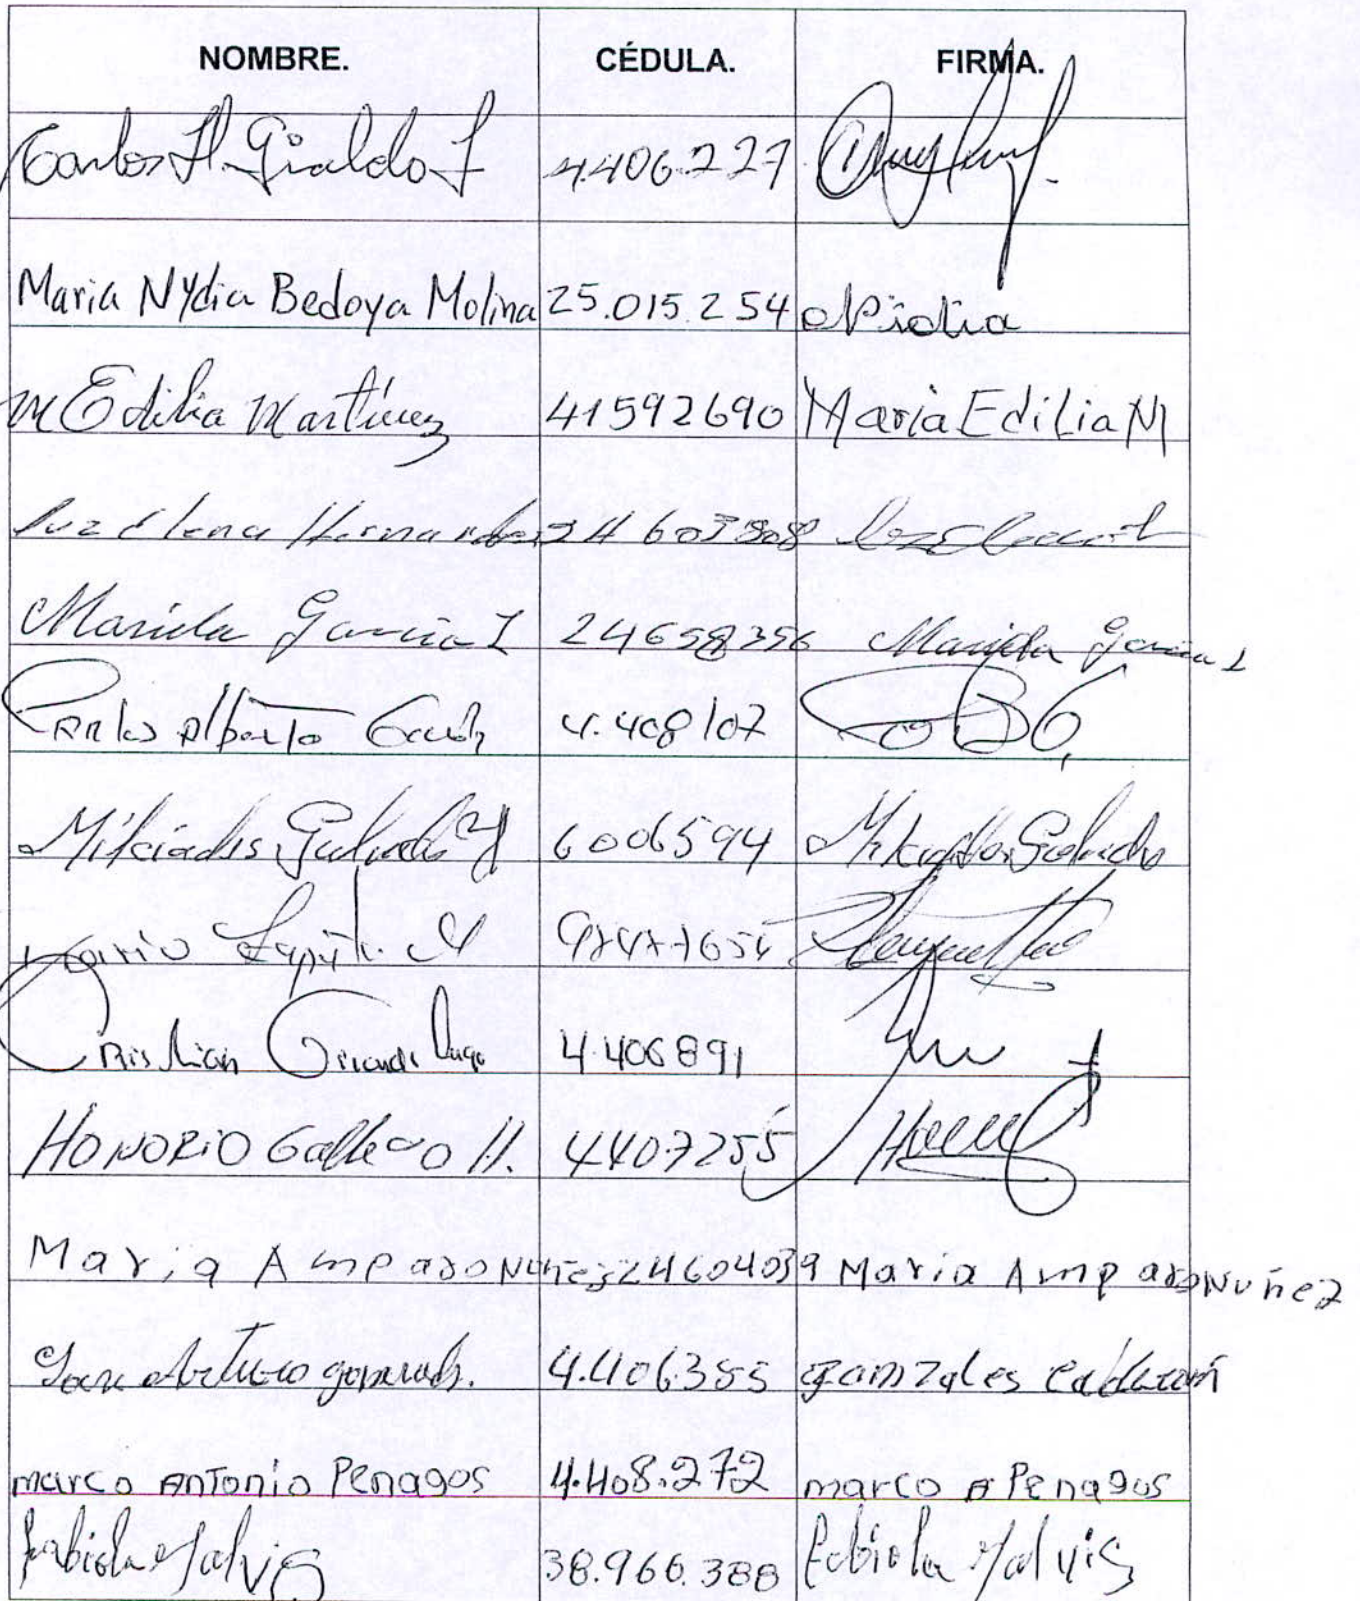 NOMBRE. CÉDULA. FIRMA.
Carlos H. Giraldo J 4.406.227
Maria Nydia Bedoya Molina 25.015.254 Nidia
M Edilia Martínez 41592690 Maria Edilia M
Luz Elena Hernandez 24 603808
Mariela Garcia L 24658356 Mariela Garcia L
Carlos Alberto 4.408107
Milciades Galindo 6006594 Milciades Galindo
4.406891
HONORIO Gallego H. 4407255
Maria Amparo Nuñez 24604039 Maria Amparo Nuñez
Jose Arturo gonzales. 4.406385 gonzales calderon
marco Antonio Penagos 4.408.272 marco A Penagos
fabiola Galvis 38.966.388 Fabiola Galvis